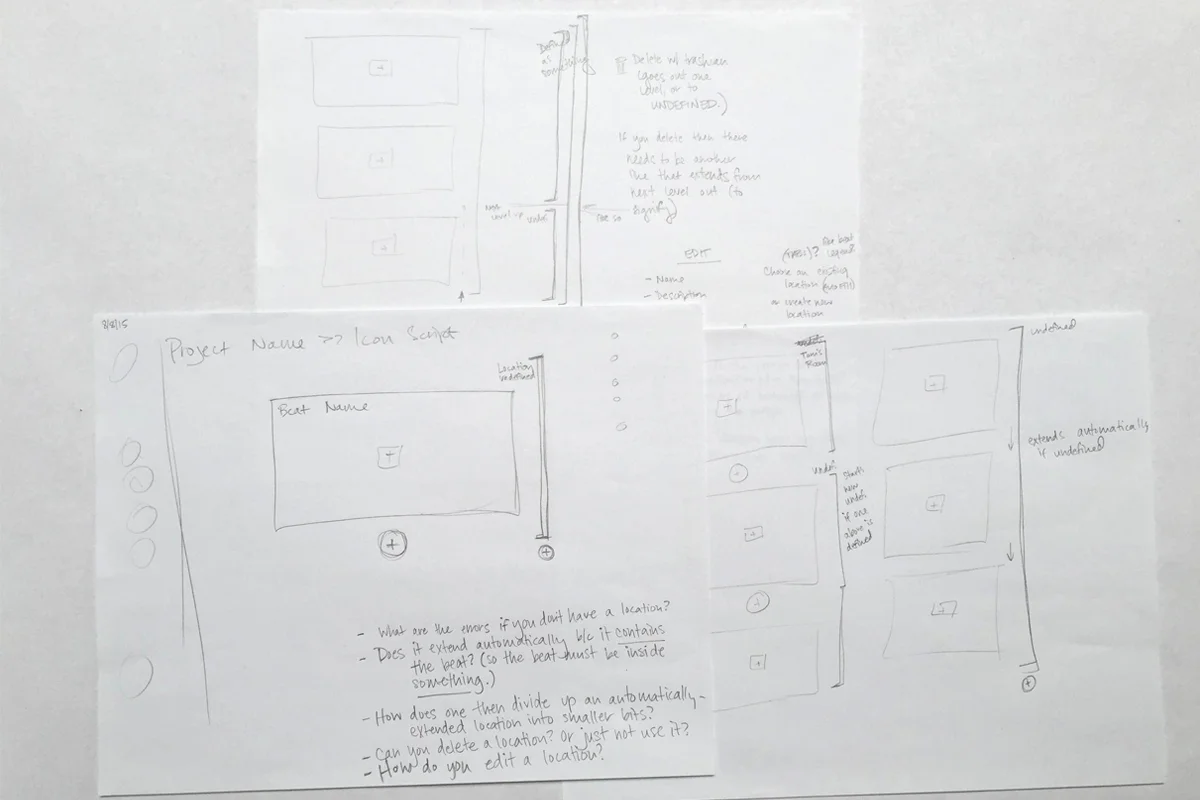 Defined
as
something
Delete w/ trashcan
(goes out one
level, or to
UNDEFINED.)
If you delete then there
needs to be another
line that extends from
next level out (to
signify)
level up
undef
EDIT
- Name
- Description
(TABS)?
Choose an existing
location
or create new
location
8/8/15
Project Name >> Icon Script
Location
undefined
Beat Name
- What are the errors if you don't have a location?
- Does it extend automatically b/c it contains
the beat? (so the beat must be inside
something.)
- How does one then divide up an automatically-
extended location into smaller bits?
- Can you delete a location? Or just not use it?
- How do you edit a location?
Tom's
Room
undef
Starts
new
undef
if one
above is
defined
undefined
extends automatically
if undefined